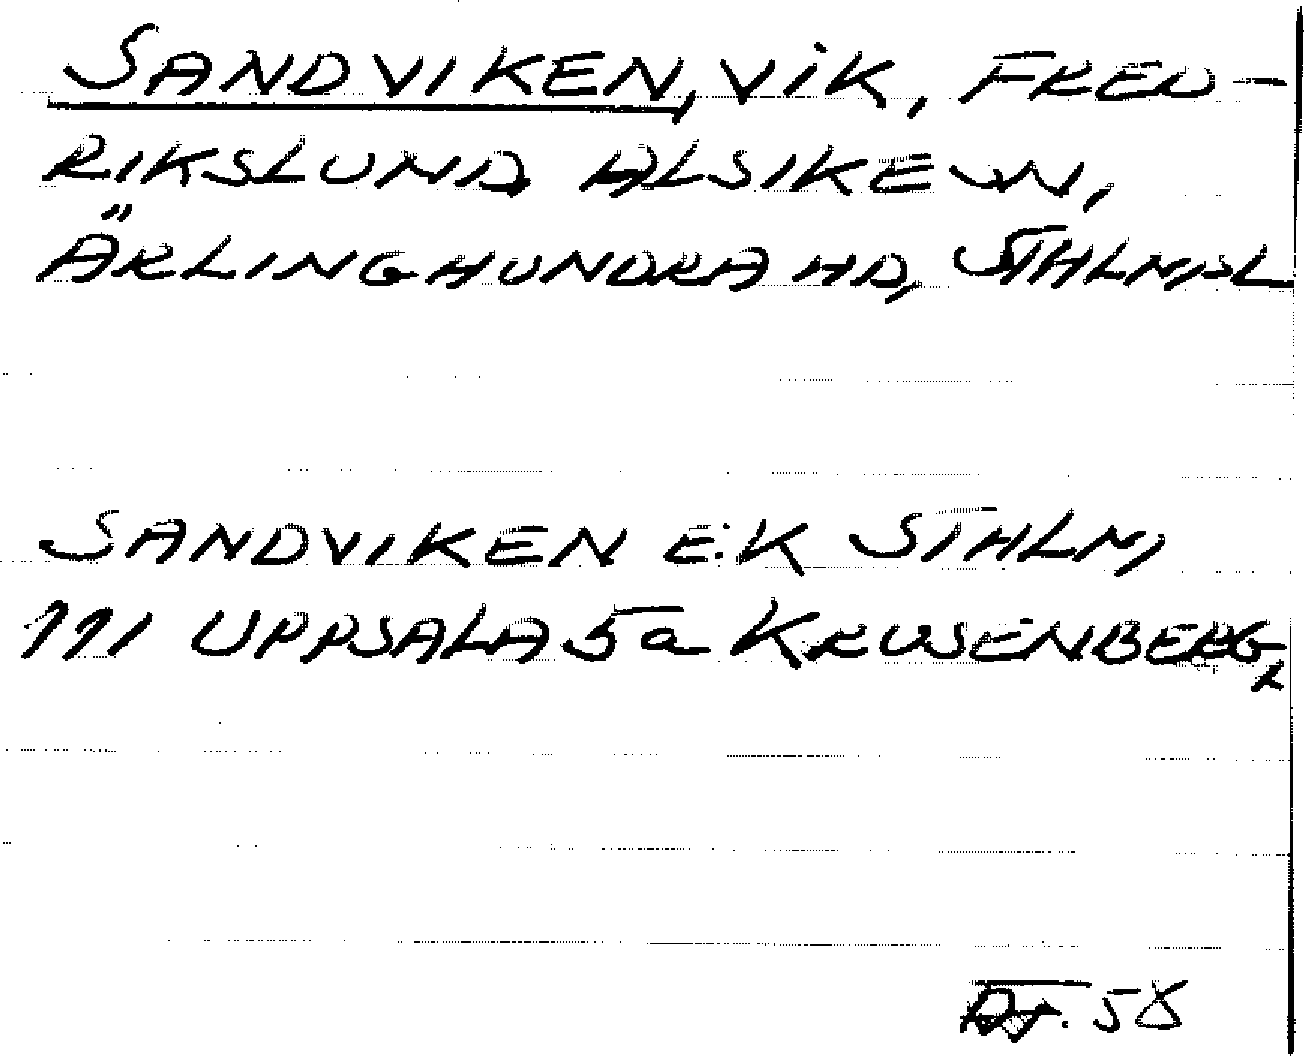 SANDVIKEN, VIK, FRED-
RIKSLUND, ALSIKE SN,
ÄRLINGHUNDRA HD, STHLMSL
SANDVIKEN E:K STHLM,
111 UPPSALA 5a KRUSENBERG,
58